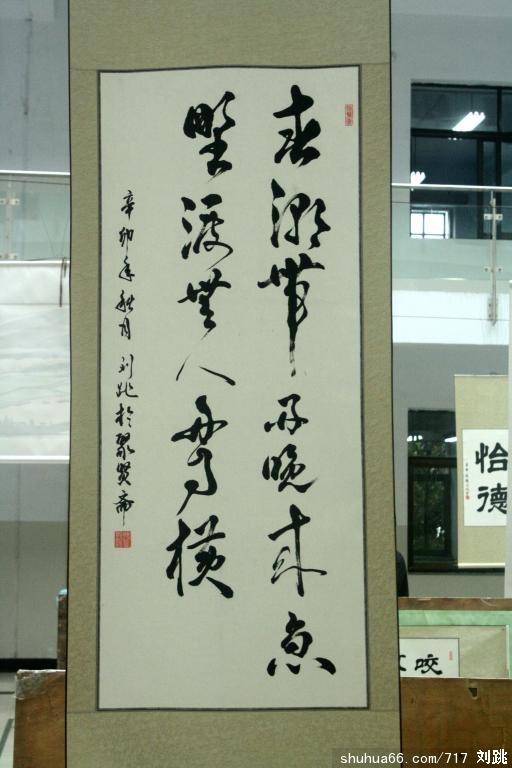 春潮带雨晚来急
野渡无人舟自横
辛卯年秋月刘跳於聚贤斋
怡德
咬
shuhua66.com/717 刘跳